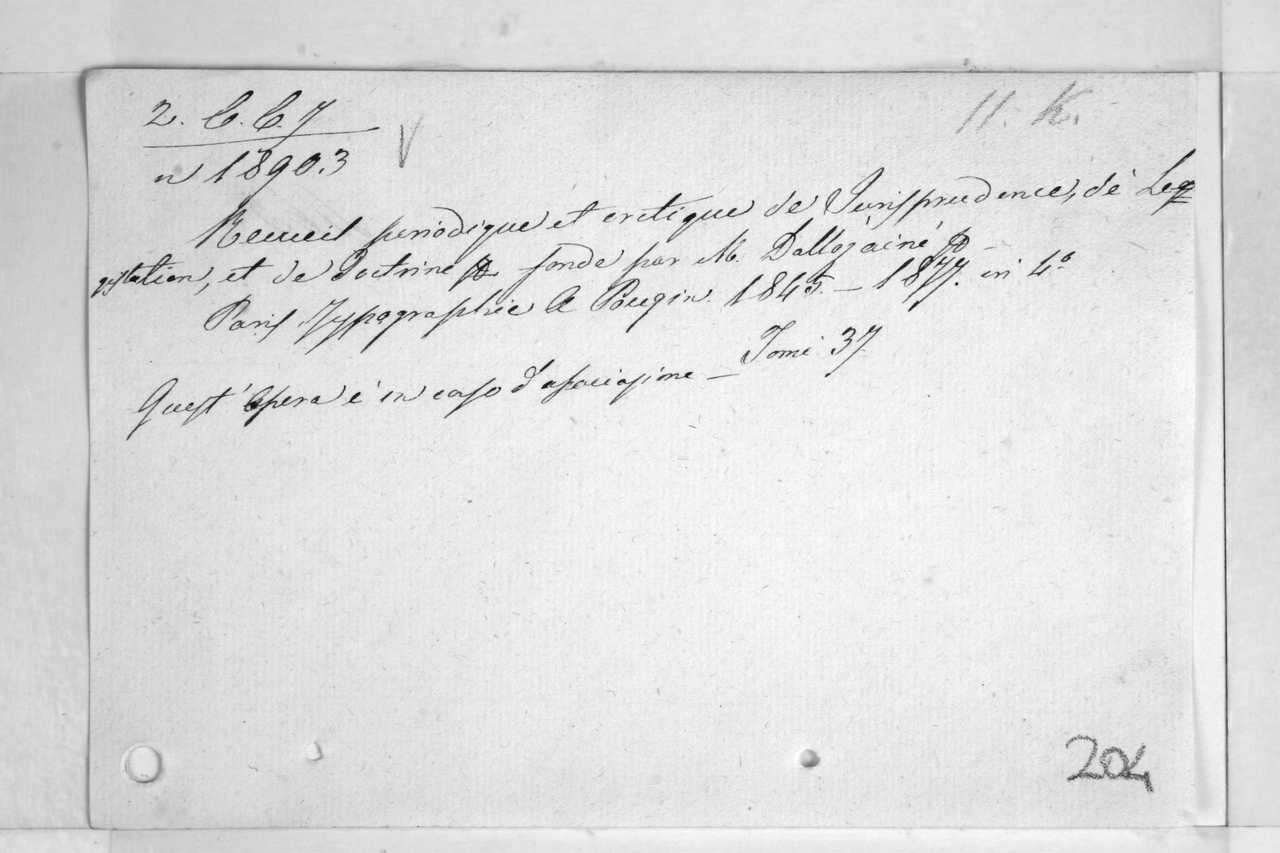 2. C. C. 7
11. K.
n 18903
Recueil periodique et critique de Jurisprudence, de Leg
islation, et de Doctrine fondé par M. Dalloz ainé
Paris Typographie A Pougin. 1845. – 1877. in 4°
Quest'Opera é in corso d'associazione – Tomi 37
204